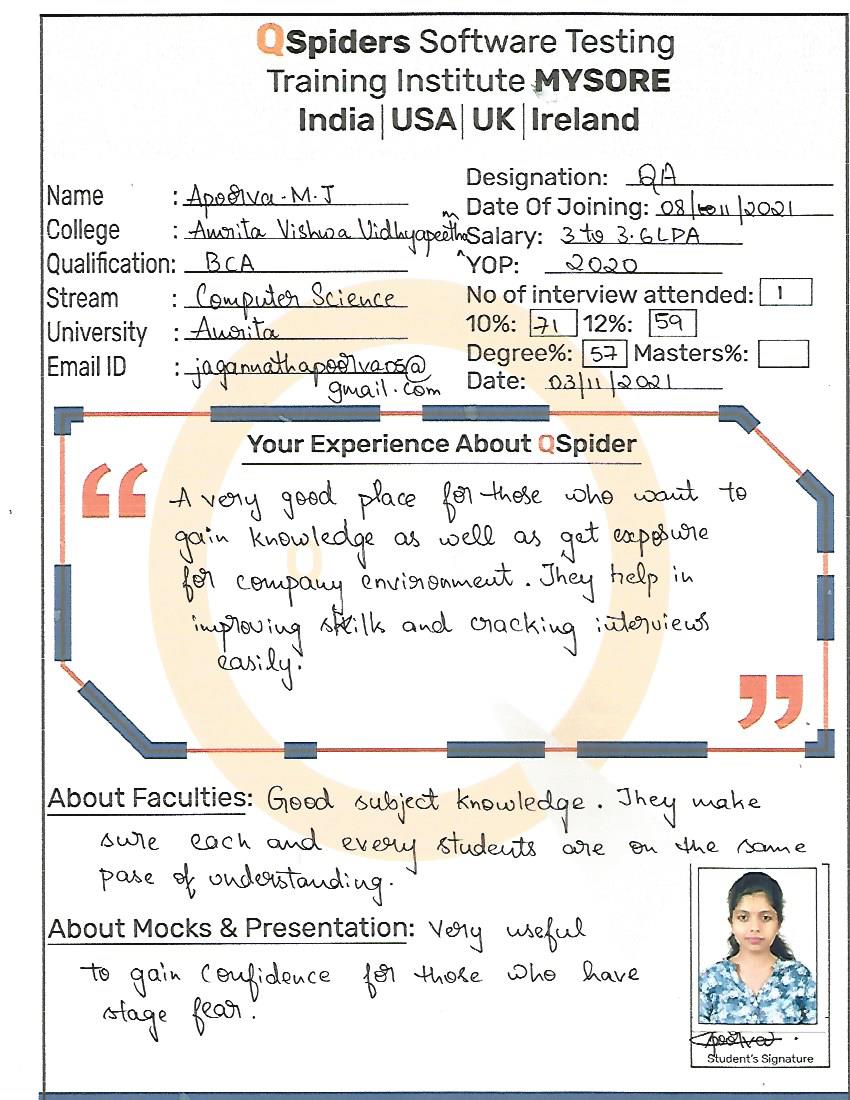 QSpiders Software Testing
Training Institute MYSORE
India | USA | UK | Ireland
Name : Apoorva.M.J
College : Amrita Vishwa Vidhyapeetham
Qualification: BCA
Stream : Computer Science
University : Amrita
Email ID : jagannathapoorva05@
gmail.com
Designation: QA
Date Of Joining: 08/11/2021
Salary: 3 to 3.6LPA
YOP: 2020
No of interview attended: 1
10%: 71 12%: 59
Degree%: 57 Masters%:
Date: 03/11/2021
Your Experience About QSpider
A very good place for those who want to
gain knowledge as well as get exposure
for company environment. They help in
improving skills and cracking interviews
easily.
About Faculties: Good subject knowledge. They make
sure each and every students are on the same
pase of understanding.
About Mocks & Presentation: Very useful
to gain confidence for those who have
stage fear.
Apoorva
Student's Signature